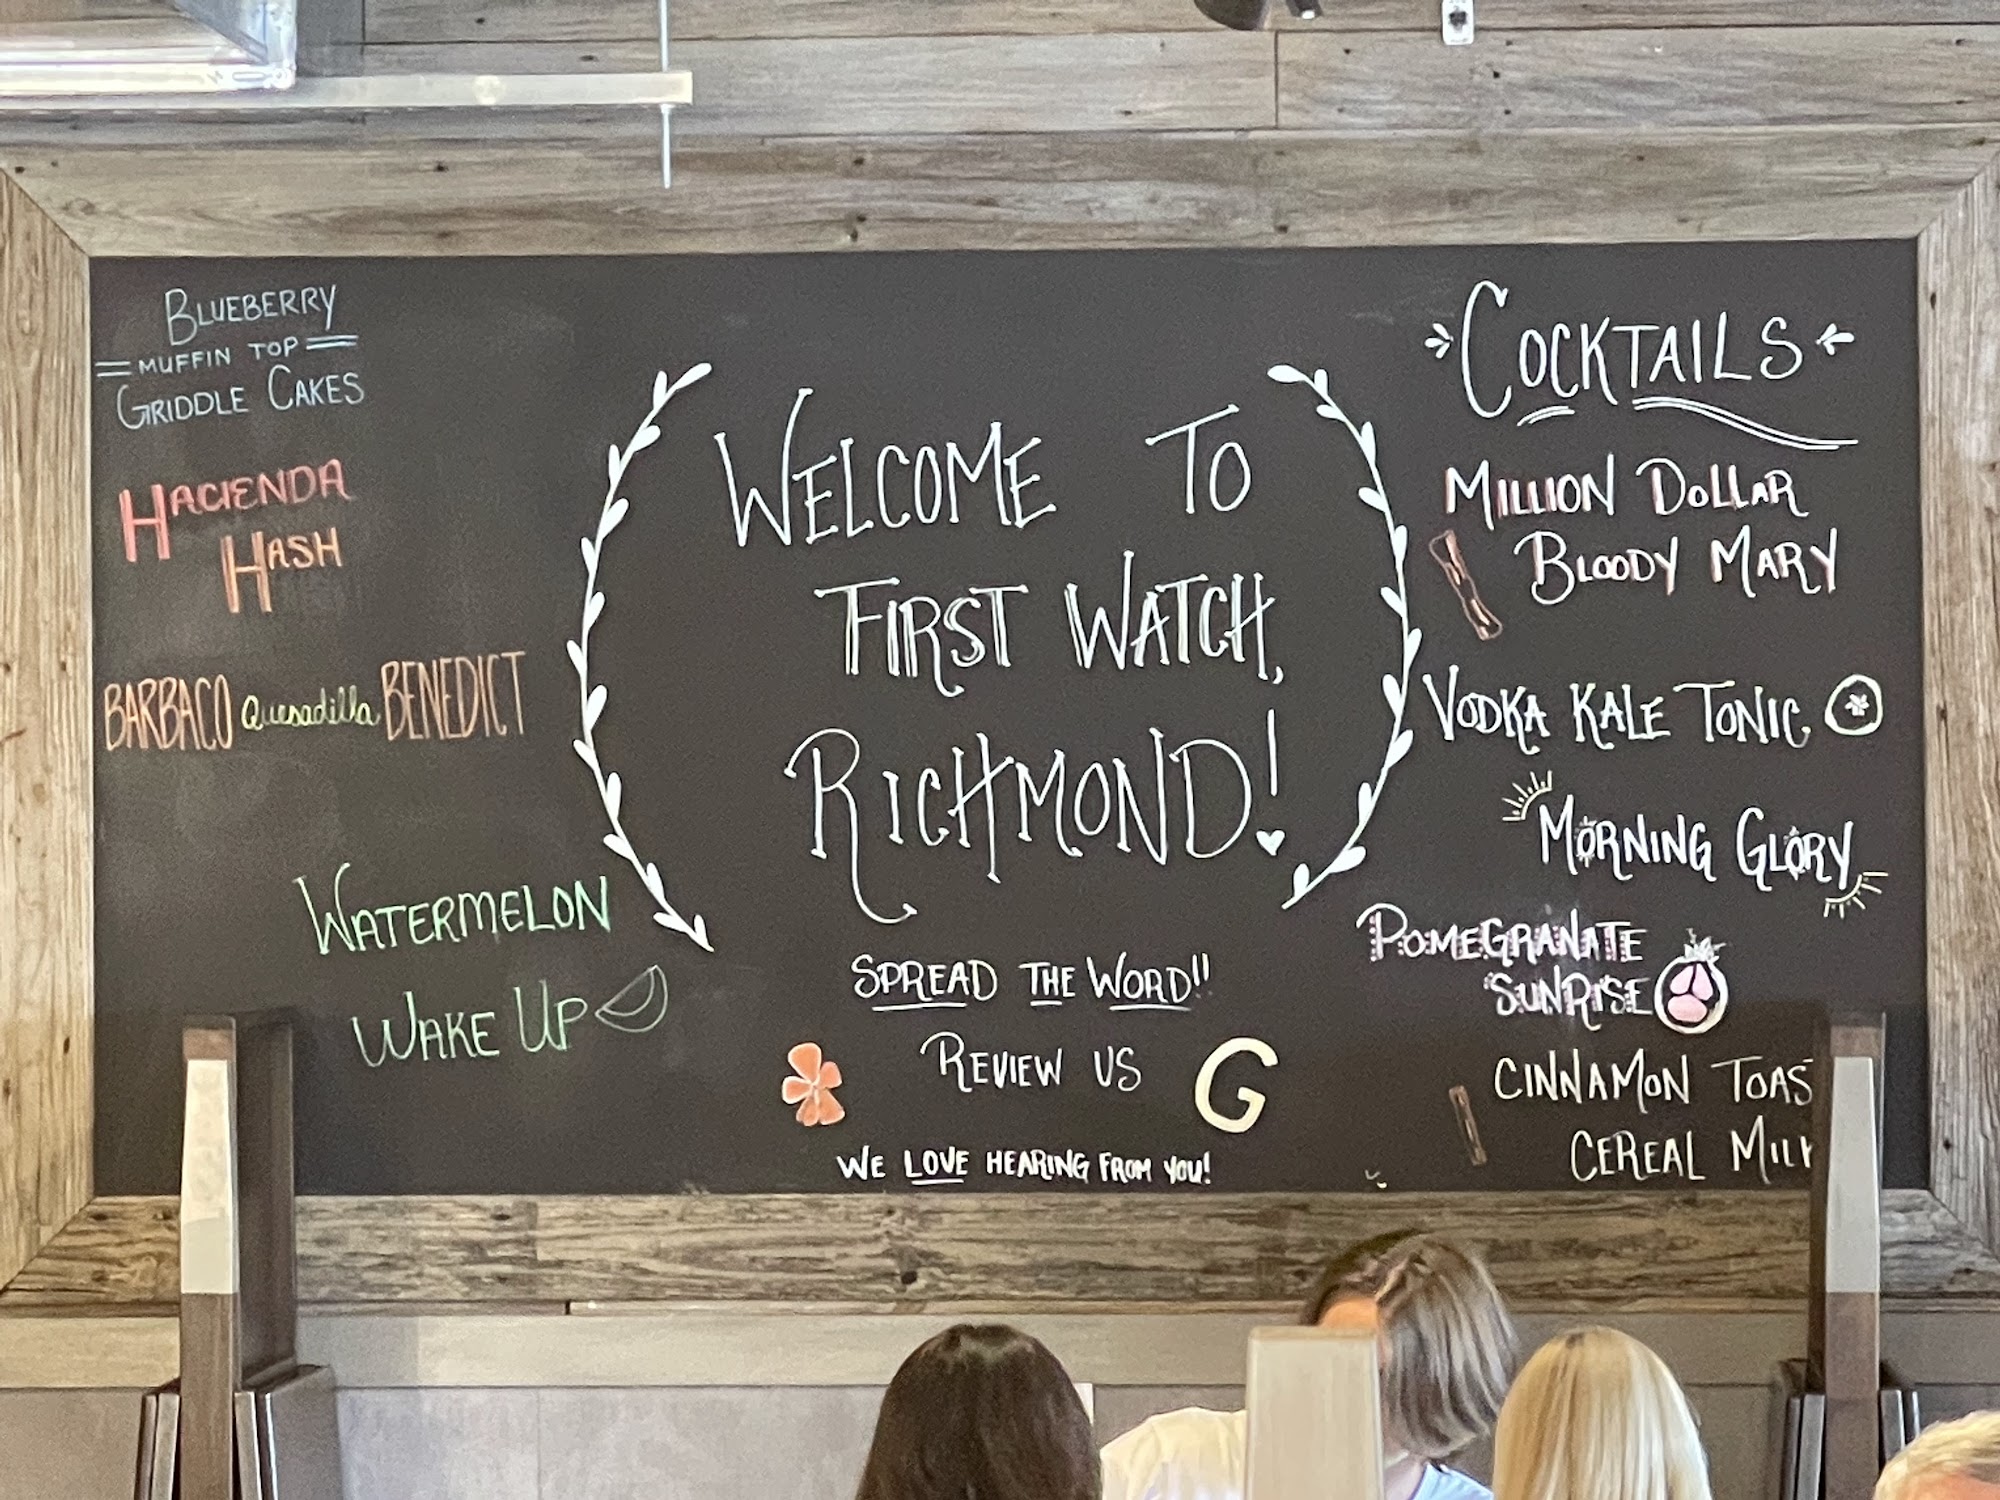 BLUEBERRY
MUFFIN TOP
GRIDDLE CAKES
HACIENDA
HASH
BARBACO Quesadilla BENEDICT
WATERMELON
WAKE UP
WELCOME TO
FIRST WATCH,
RICHMOND!
SPREAD THE WORD!!
REVIEW US G
WE LOVE HEARING FROM YOU!
COCKTAILS
MILLION DOLLAR
BLOODY MARY
VODKA KALE TONIC
MORNING GLORY
POMEGRANATE
SUNRISE
CINNAMON TOAS
CEREAL MILK